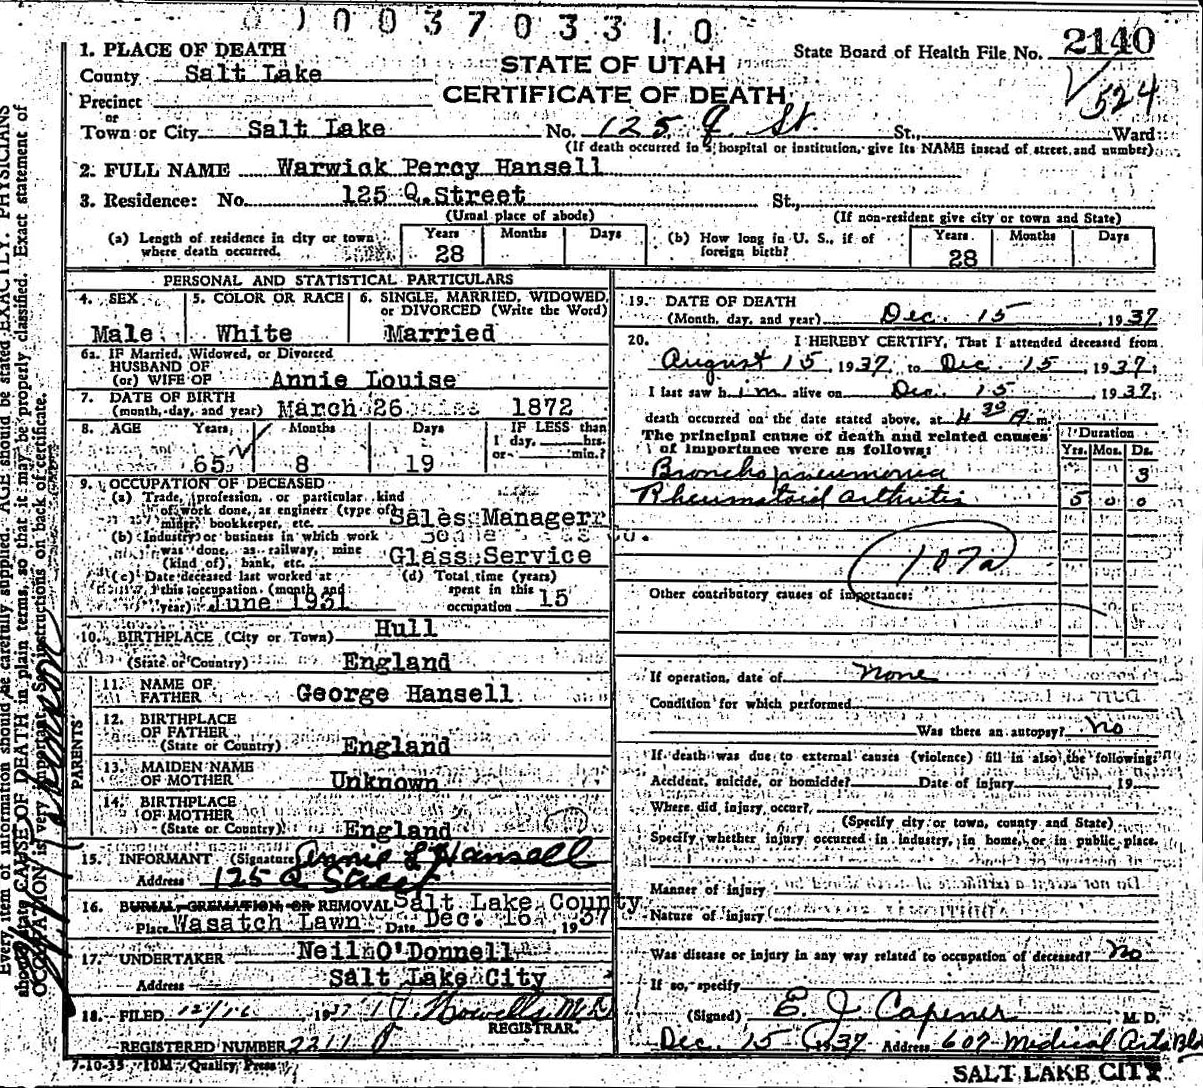 003703310
1. PLACE OF DEATH
County Salt Lake
Precinct
or
Town or City Salt Lake
STATE OF UTAH
CERTIFICATE OF DEATH
State Board of Health File No. 2140
524
No. 125 Q. St. St., Ward
(If death occurred in a hospital or institution, give its NAME insead of street and number)
2. FULL NAME Warwick Percy Hansell
3. Residence: No. 125 Q. Street St.,
(Usual place of abode)
(If non-resident give city or town and State)
(a) Length of residence in city or town where death occurred.
Years Months Days
28
(b) How long in U. S., if of foreign birth?
Years Months Days
28
PERSONAL AND STATISTICAL PARTICULARS
4. SEX
Male
5. COLOR OR RACE
White
6. SINGLE, MARRIED, WIDOWED,
or DIVORCED (Write the Word)
Married
6a. IF Married, Widowed, or Divorced
HUSBAND OF
(or) WIFE OF Annie Louise
7. DATE OF BIRTH
(month, day, and year) March 26 1872
8. AGE Years Months Days
IF LESS than
1 day, hrs.
or min.?
65 8 19
9. OCCUPATION OF DECEASED
(a) Trade, profession, or particular kind
of work done, as engineer (type of)
miner, bookkeeper, etc. Sales Manager
(b) Industry or business in which work
was done, as railway, mine
(kind of), bank, etc. Glass Service
(c) Date deceased last worked at
this occupation (month and
year) June 1931
(d) Total time (years)
spent in this
occupation 15
10. BIRTHPLACE (City or Town) Hull
(State or Country) England
PARENTS
11. NAME OF
FATHER George Hansell
12. BIRTHPLACE
OF FATHER
(State or Country) England
13. MAIDEN NAME
OF MOTHER Unknown
14. BIRTHPLACE
OF MOTHER
(State or Country) England
15. INFORMANT (Signature) Annie L Hansell
Address 125 Q Street
16. BURIAL CREMATION OR REMOVAL Salt Lake County
Place Wasatch Lawn Date Dec. 16 1937
17. UNDERTAKER Neil O'Donnell
Address Salt Lake City
18. FILED 12/16 1937 Howells M.D.
REGISTRAR.
REGISTERED NUMBER 2211
7-10-35 10M Quality Press
19. DATE OF DEATH
(Month, day, and year) Dec. 15, 1937
20. I HEREBY CERTIFY, That I attended deceased from
August 15, 1937, to Dec. 15, 1937;
I last saw him alive on Dec. 15, 1937;
death occurred on the date stated above, at 4 30 A m.
The principal cause of death and related causes
of importance were as follows:
Duration
Yrs. Mos. Ds.
Bronchopneumonia 3
Rheumatoid arthritis 5 0 0
107a
Other contributory causes of importance:
If operation, date of none
Condition for which performed
Was there an autopsy? No
If death was due to external causes (violence) fill in also the following:
Accident, suicide, or homicide? Date of injury 19
Where did injury occur?
(Specify city or town, county and State)
Specify whether injury occurred in industry, in home, or in public place.
Manner of injury
Nature of injury
Was disease or injury in any way related to occupation of deceased? No
If so, specify
(Signed) E. J. Capener M. D.
Dec. 15 1937 Address 607 Medical Arts Bl
SALT LAKE CITY
Every item of information should be carefully supplied. AGE should be stated EXACTLY. PHYSICIANS
should state CAUSE OF DEATH in plain terms, so that it may be properly classified. Exact statement of
OCCUPATION is very important. See instructions on back of certificate.